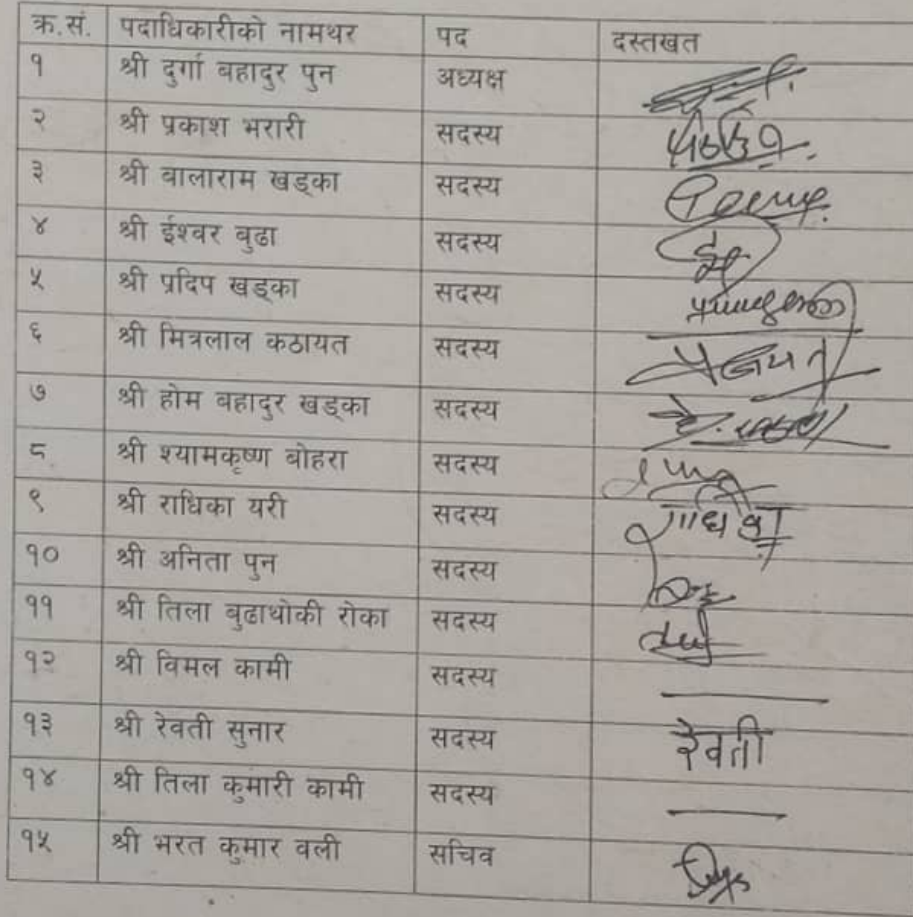 क्र.सं. पदाधिकारीको नामथर पद दस्तखत
१ श्री दुर्गा बहादुर पुन अध्यक्ष
२ श्री प्रकाश भरारी सदस्य
३ श्री बालाराम खड्का सदस्य
४ श्री ईश्वर बुढा सदस्य
५ श्री प्रदिप खड्का सदस्य
६ श्री मित्रलाल कठायत सदस्य
७ श्री होम बहादुर खड्का सदस्य
८ श्री श्यामकृष्ण बोहरा सदस्य
९ श्री राधिका यरी सदस्य राधिका
१० श्री अनिता पुन सदस्य
११ श्री तिला बुढाथोकी रोका सदस्य
१२ श्री विमल कामी सदस्य
१३ श्री रेवती सुनार सदस्य रेवती
१४ श्री तिला कुमारी कामी सदस्य
१५ श्री भरत कुमार वली सचिव